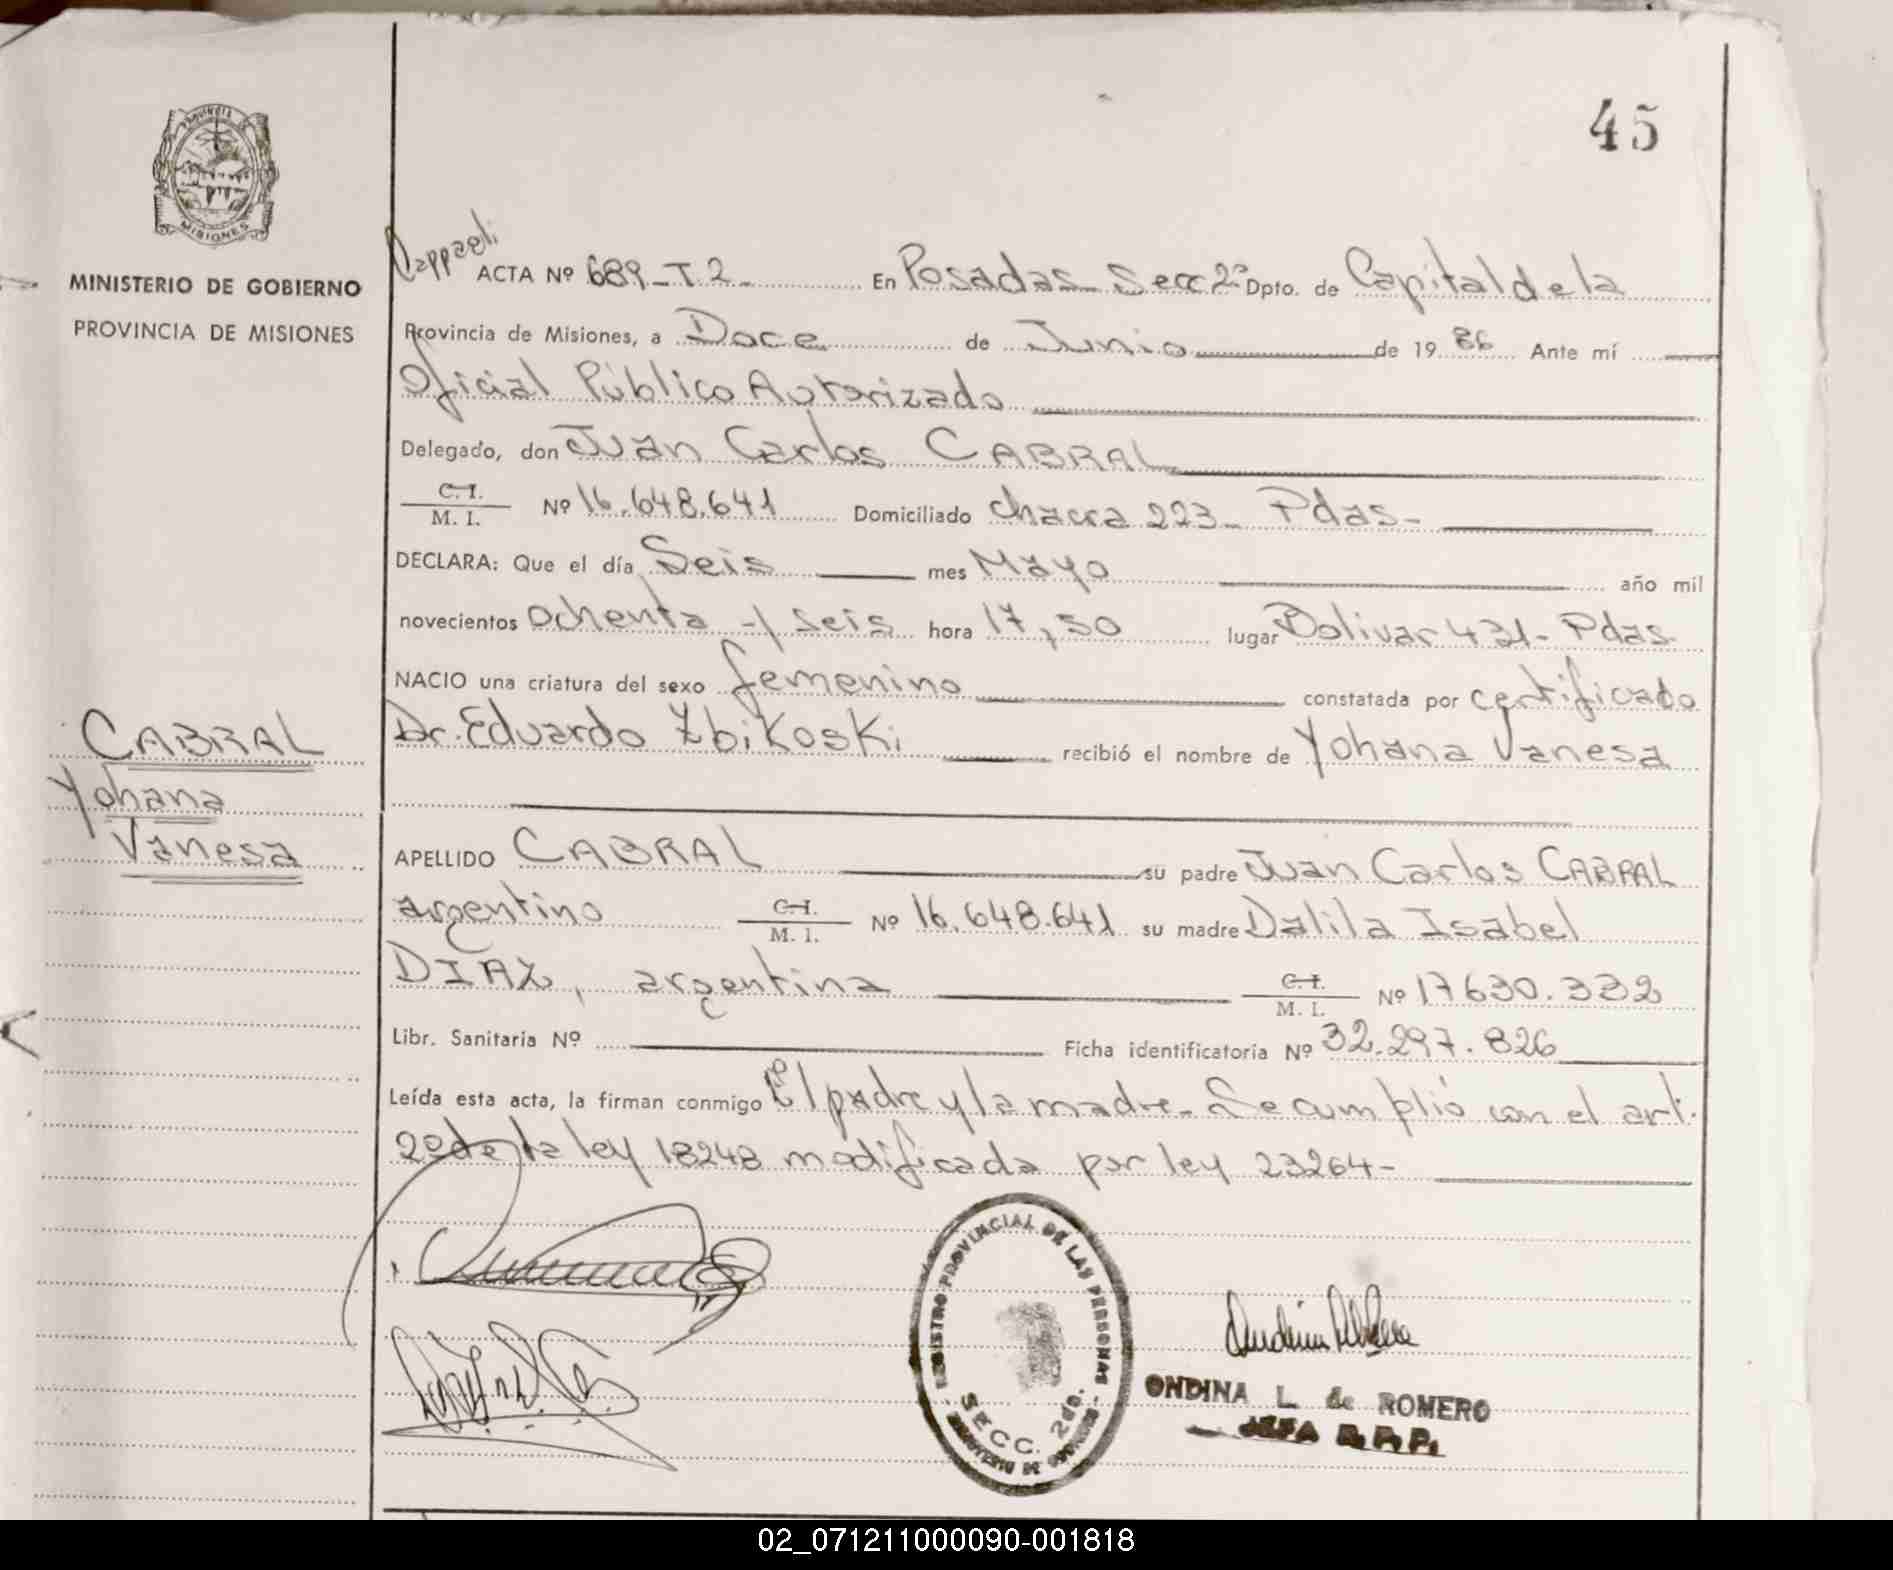 45
PROVINCIA DE
MISIONES
MINISTERIO DE GOBIERNO
PROVINCIA DE MISIONES
Cappaeli
ACTA Nº 689-T2- En Posadas- Secc 2ª Dpto. de Capital de la
Provincia de Misiones, a Doce de Junio de 19 86 Ante mí
Oficial Público Autorizado
Delegado, don Juan Carlos CABRAL
C.I.
M. I. Nº 16.648.641 Domiciliado chacra 223- Pdas-
DECLARA: Que el día Seis mes Mayo año mil
novecientos ochenta y seis hora 17,50 lugar Bolivar 431- Pdas.
NACIO una criatura del sexo femenino constatada por certificado
Dr. Eduardo Zbikoski recibió el nombre de Yohana Vanesa
CABRAL
Yohana
Vanesa
APELLIDO CABRAL su padre Juan Carlos CABRAL
argentino C.I. M. I. Nº 16.648.641 su madre Dalila Isabel
DIAZ, argentina C.I. M. I. Nº 17630.332
Libr. Sanitaria Nº Ficha identificatoria Nº 32.297.826
Leída esta acta, la firman conmigo El padre y la madre- Se cumplió con el art.
2º de la ley 18248 modificada por ley 23264-
REGISTRO PROVINCIAL DE LAS PERSONAS
SECC. 2da.
MINISTERIO DE GOBIERNO
ONDINA L. de ROMERO
JEFA R. P. P.
02_071211000090-001818